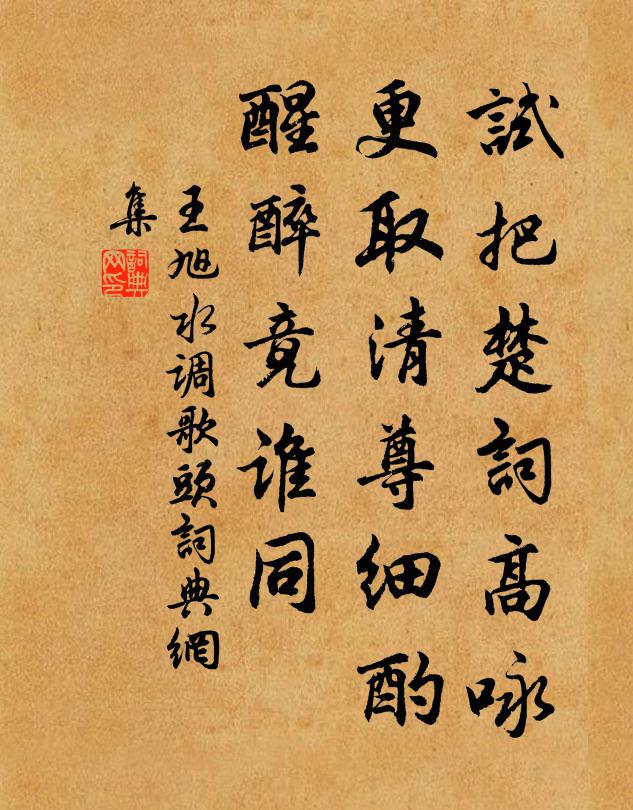 試把楚詞高咏
更取清尊細酌
醒醉竟誰同
王旭水调歌頭詞典網
集
詞典网印